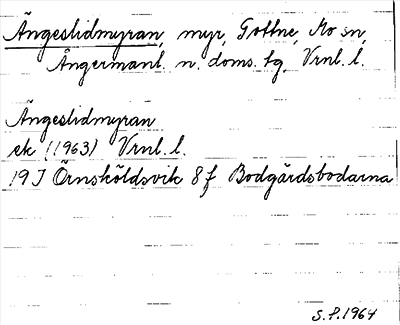 Ängeslidmyran, myr, Gottne, Mo sn,
Ångermanl. n. doms. tg, Vrnl. l.
Ängeslidmyran
ek (1963) Vrnl. l.
19 J Örnsköldsvik 8 f Bodgårdsbodarna
S.P.1964